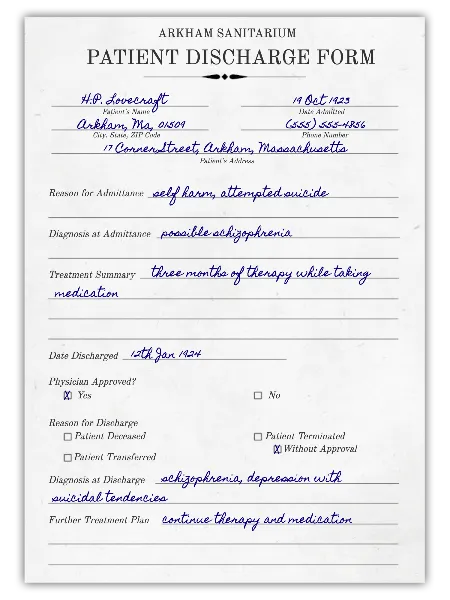 ARKHAM SANITARIUM
PATIENT DISCHARGE FORM
H.P. Lovecraft 19 Oct 1923
Patient's Name Date Admitted
Arkham, Ma, 01509 (555) 555-4856
City, State, ZIP Code Phone Number
17 Corner Street, Arkham, Massachusetts
Patient's Address
Reason for Admittance self harm, attempted suicide
Diagnosis at Admittance possible schizophrenia
Treatment Summary three months of therapy while taking
medication
Date Discharged 12th Jan 1924
Physician Approved?
Yes No
Reason for Discharge
Patient Deceased Patient Terminated
Without Approval
Patient Transferred
Diagnosis at Discharge schizophrenia, depression with
suicidal tendencies
Further Treatment Plan continue therapy and medication